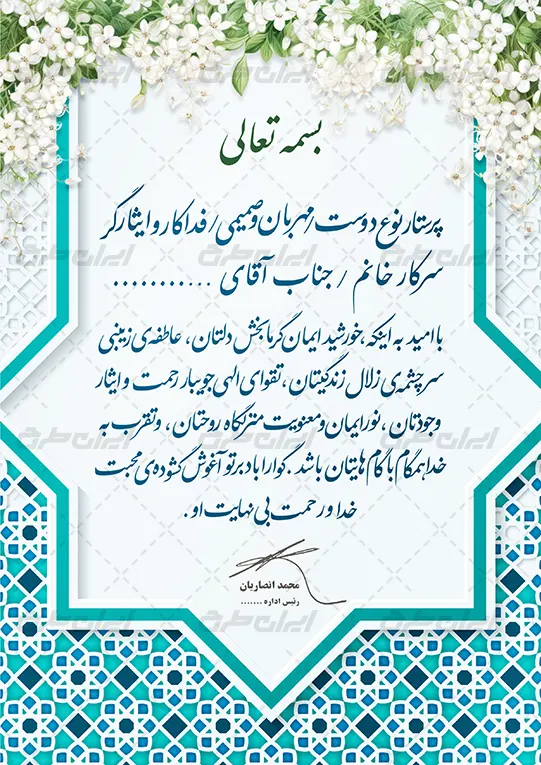 بسمه تعالی
پرستار نوع دوست / مهربان و صمیمی / فداکار و ایثارگر
سرکار خانم / جناب آقای ...........
با امید به اینکه، خورشید ایمان گرمابخش دلتان، عاطفه‌ی زینبی
سرچشمه‌ی زلال زندگیتان، تقوای الهی جویبار رحمت و ایثار
وجودتان، نور ایمان و معنویت منزلگاه روحتان، و تقرب به
خدا همگام با گام هایتان باشد. گوارا باد بر تو آغوش گشوده‌ی محبت
خدا و رحمت بی نهایت او.
محمد انصاریان
رئیس اداره .......
ایران طرح